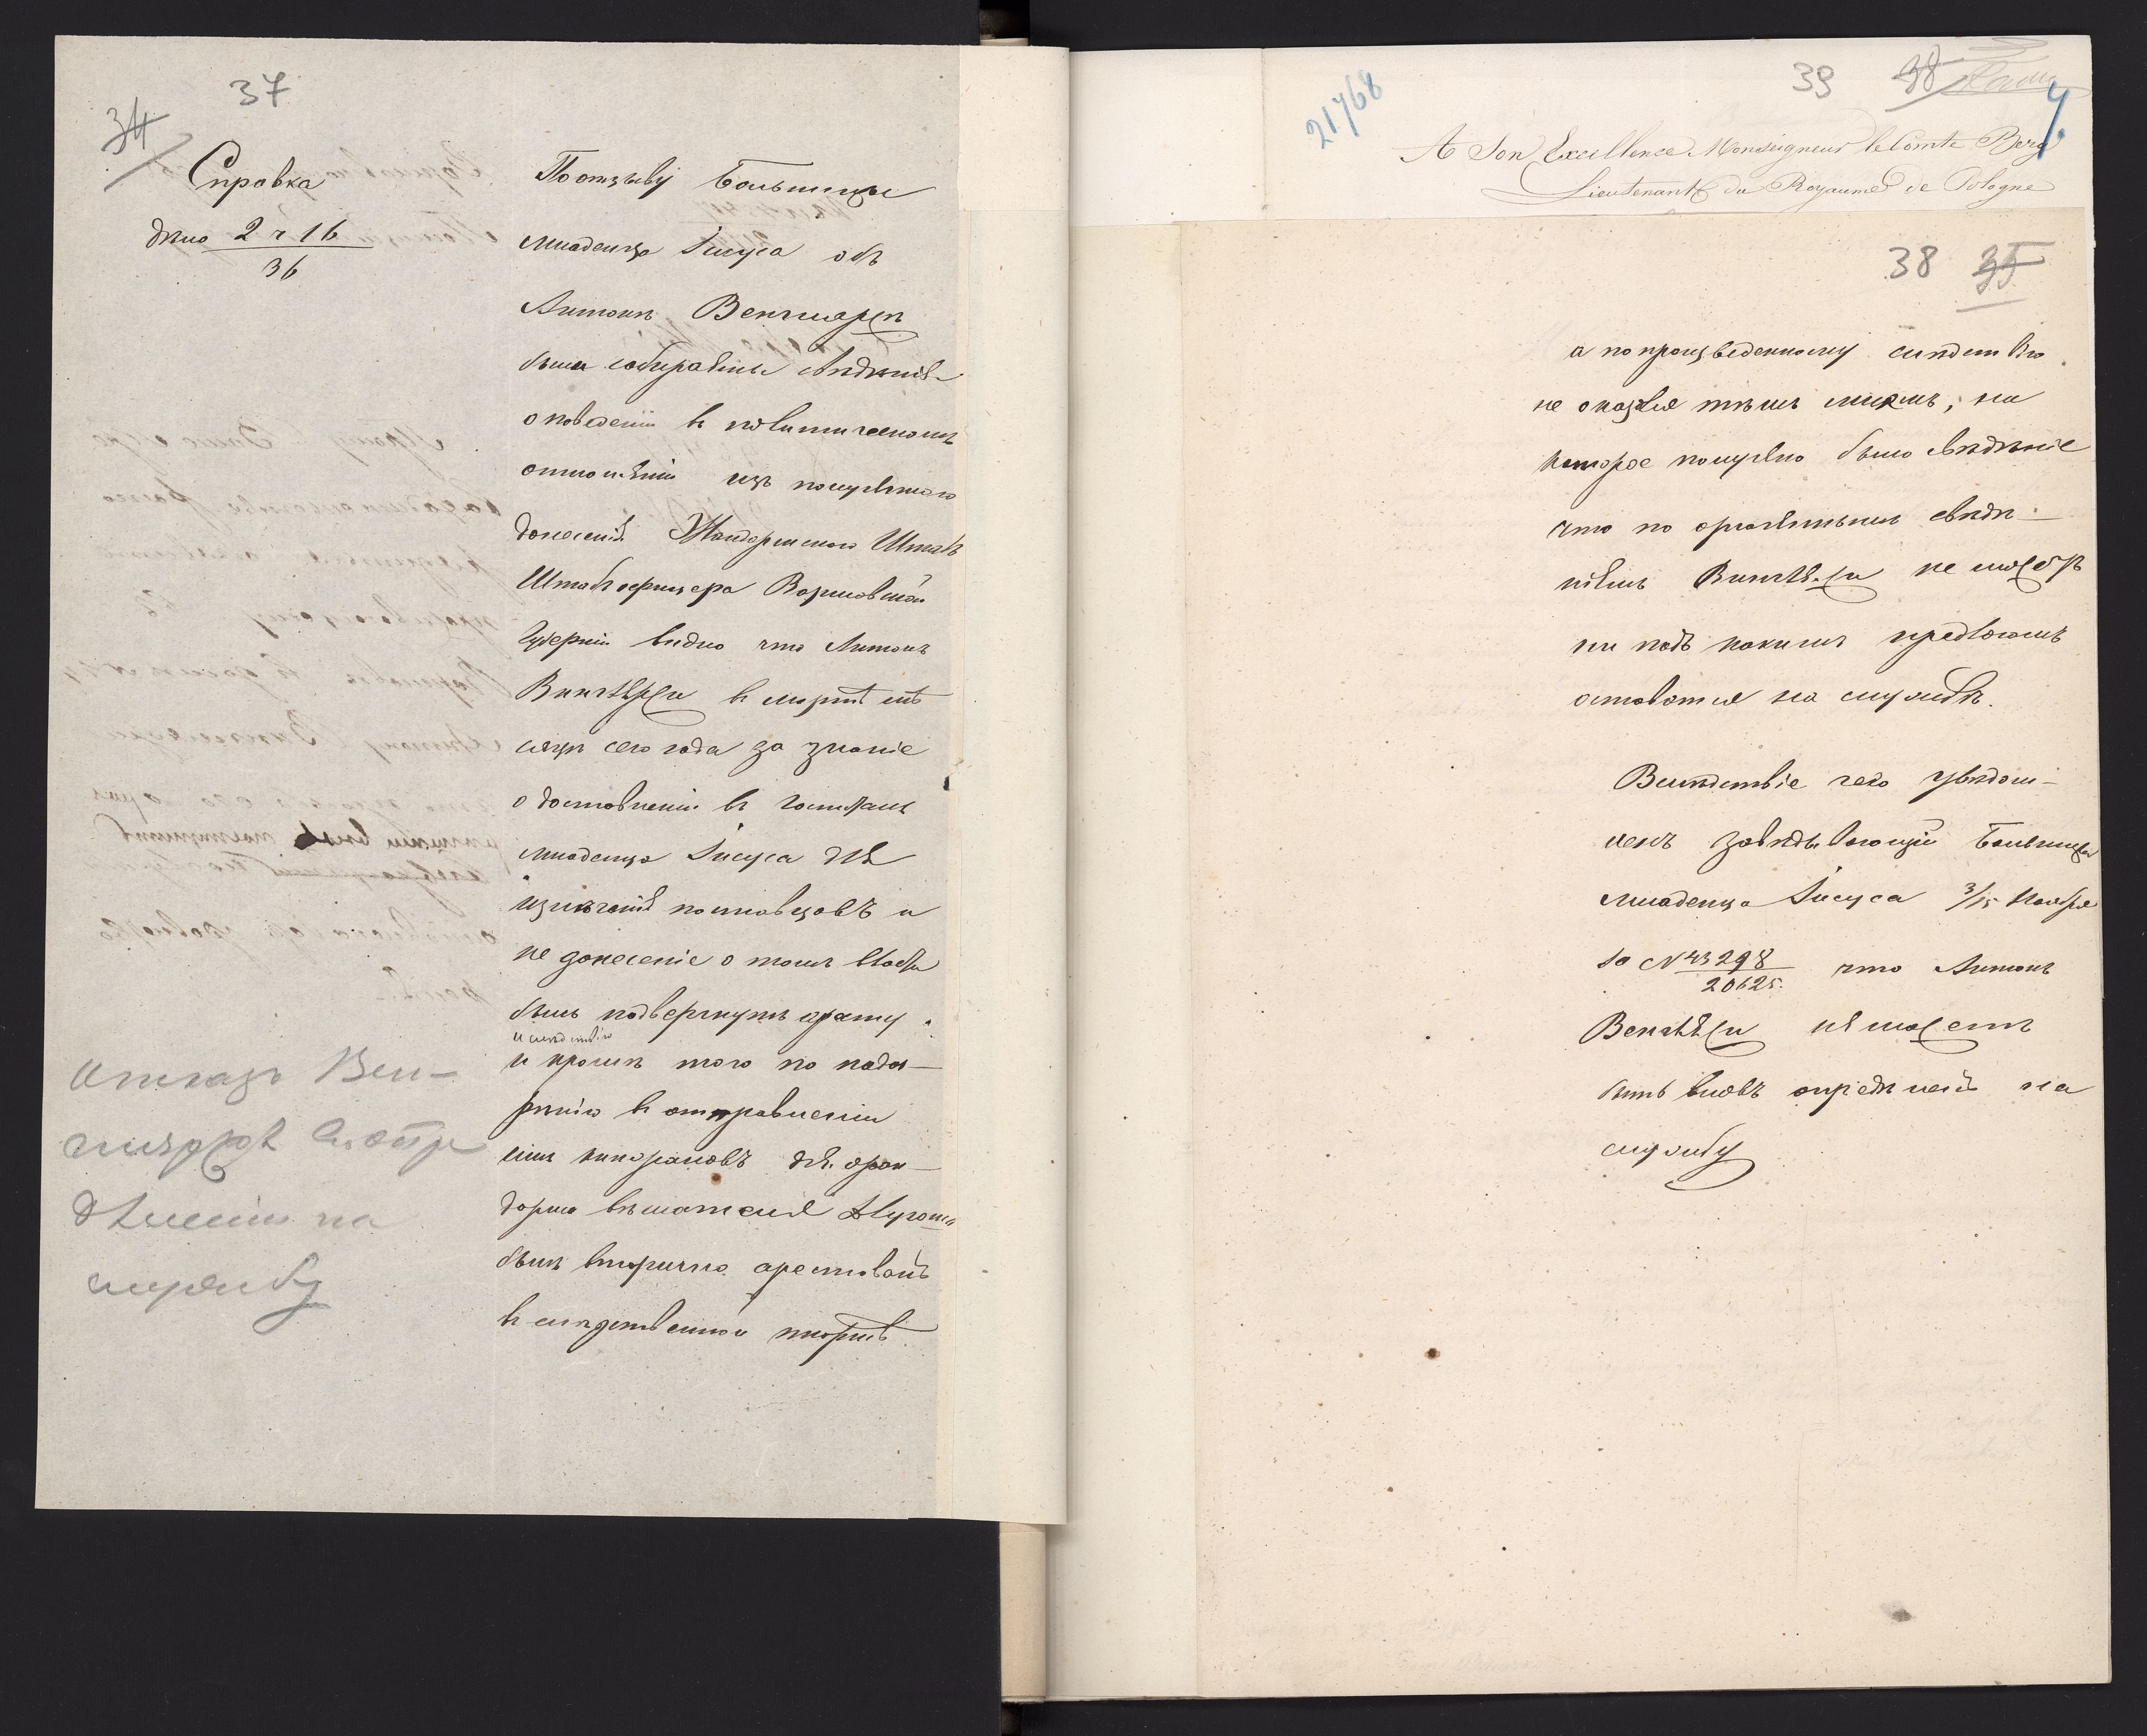 37
34
Справка
дѣло 2 ч 16
36
По отзыву Больницы
младенца Іисуса объ
Антонѣ
были собираемы свѣдѣнія
о поведеніи въ политическомъ
отношеніи изъ полученнаго
донесенія Жандармскаго Штабъ
Штабъ офицера Варшавской
Губерніи видно что Антонъ
въ мартѣ мѣ
сяцѣ сего года за знаніе
о доставленіи въ Госпиталь
младенца Іисуса для
излѣченія повстанцовъ и
не донесеніе о томъ власти
былъ подвергнутъ аресту
и слѣдствію
и кромѣ того по подо-
зрѣнію въ отправленіи
имъ для жан-
дарма вѣшателя
былъ вторично арестованъ
въ слѣдственной тюрьмѣ
Отказъ Вен-
опре
дѣленіи на
службу
21768
39 38
A Son Excellence Monseigneur le Comte Berg
Lieutenant du Royaume de Pologne
38 35
а по произведенному слѣдствію
не оказался тѣмъ лицомъ, на
которое получено было свѣдѣніе
что по
ніямъ не можетъ
ни подъ какимъ предлогомъ
оставаться на службѣ.
Вслѣдствіе чего увѣдом-
ленъ завѣдывающій Больницею
младенца Іисуса 3/15 Ноября
за № 43298
20625.
что Антонъ
не можетъ
быть вновь опредѣленъ на
службу